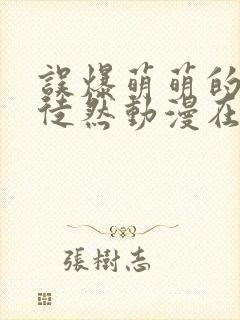 誤爆萌萌的
徒然動漫在
張樹志